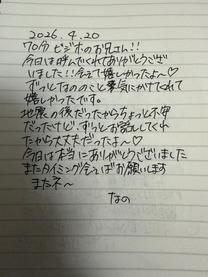 2026.4.20
70分 ビジホのお兄さん!!
今日は呼んでくれてありがとうござい
いました!!会えて嬉しかったよ〜♡
ずっとなののこと気にかけてくれて
嬉しかったです。
地震の後だったからちょっと不安
だったけど、ずっとお話ししてくれ
たから大丈夫だったよ〜♡
今日は本当にありがとうございました
またタイミング会えばお願いします
またネ〜
なの